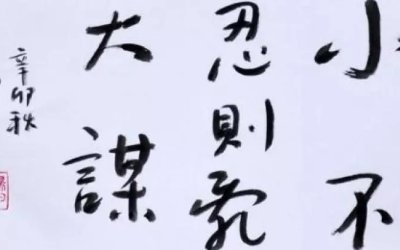 小不
忍則亂
大謀
辛卯秋